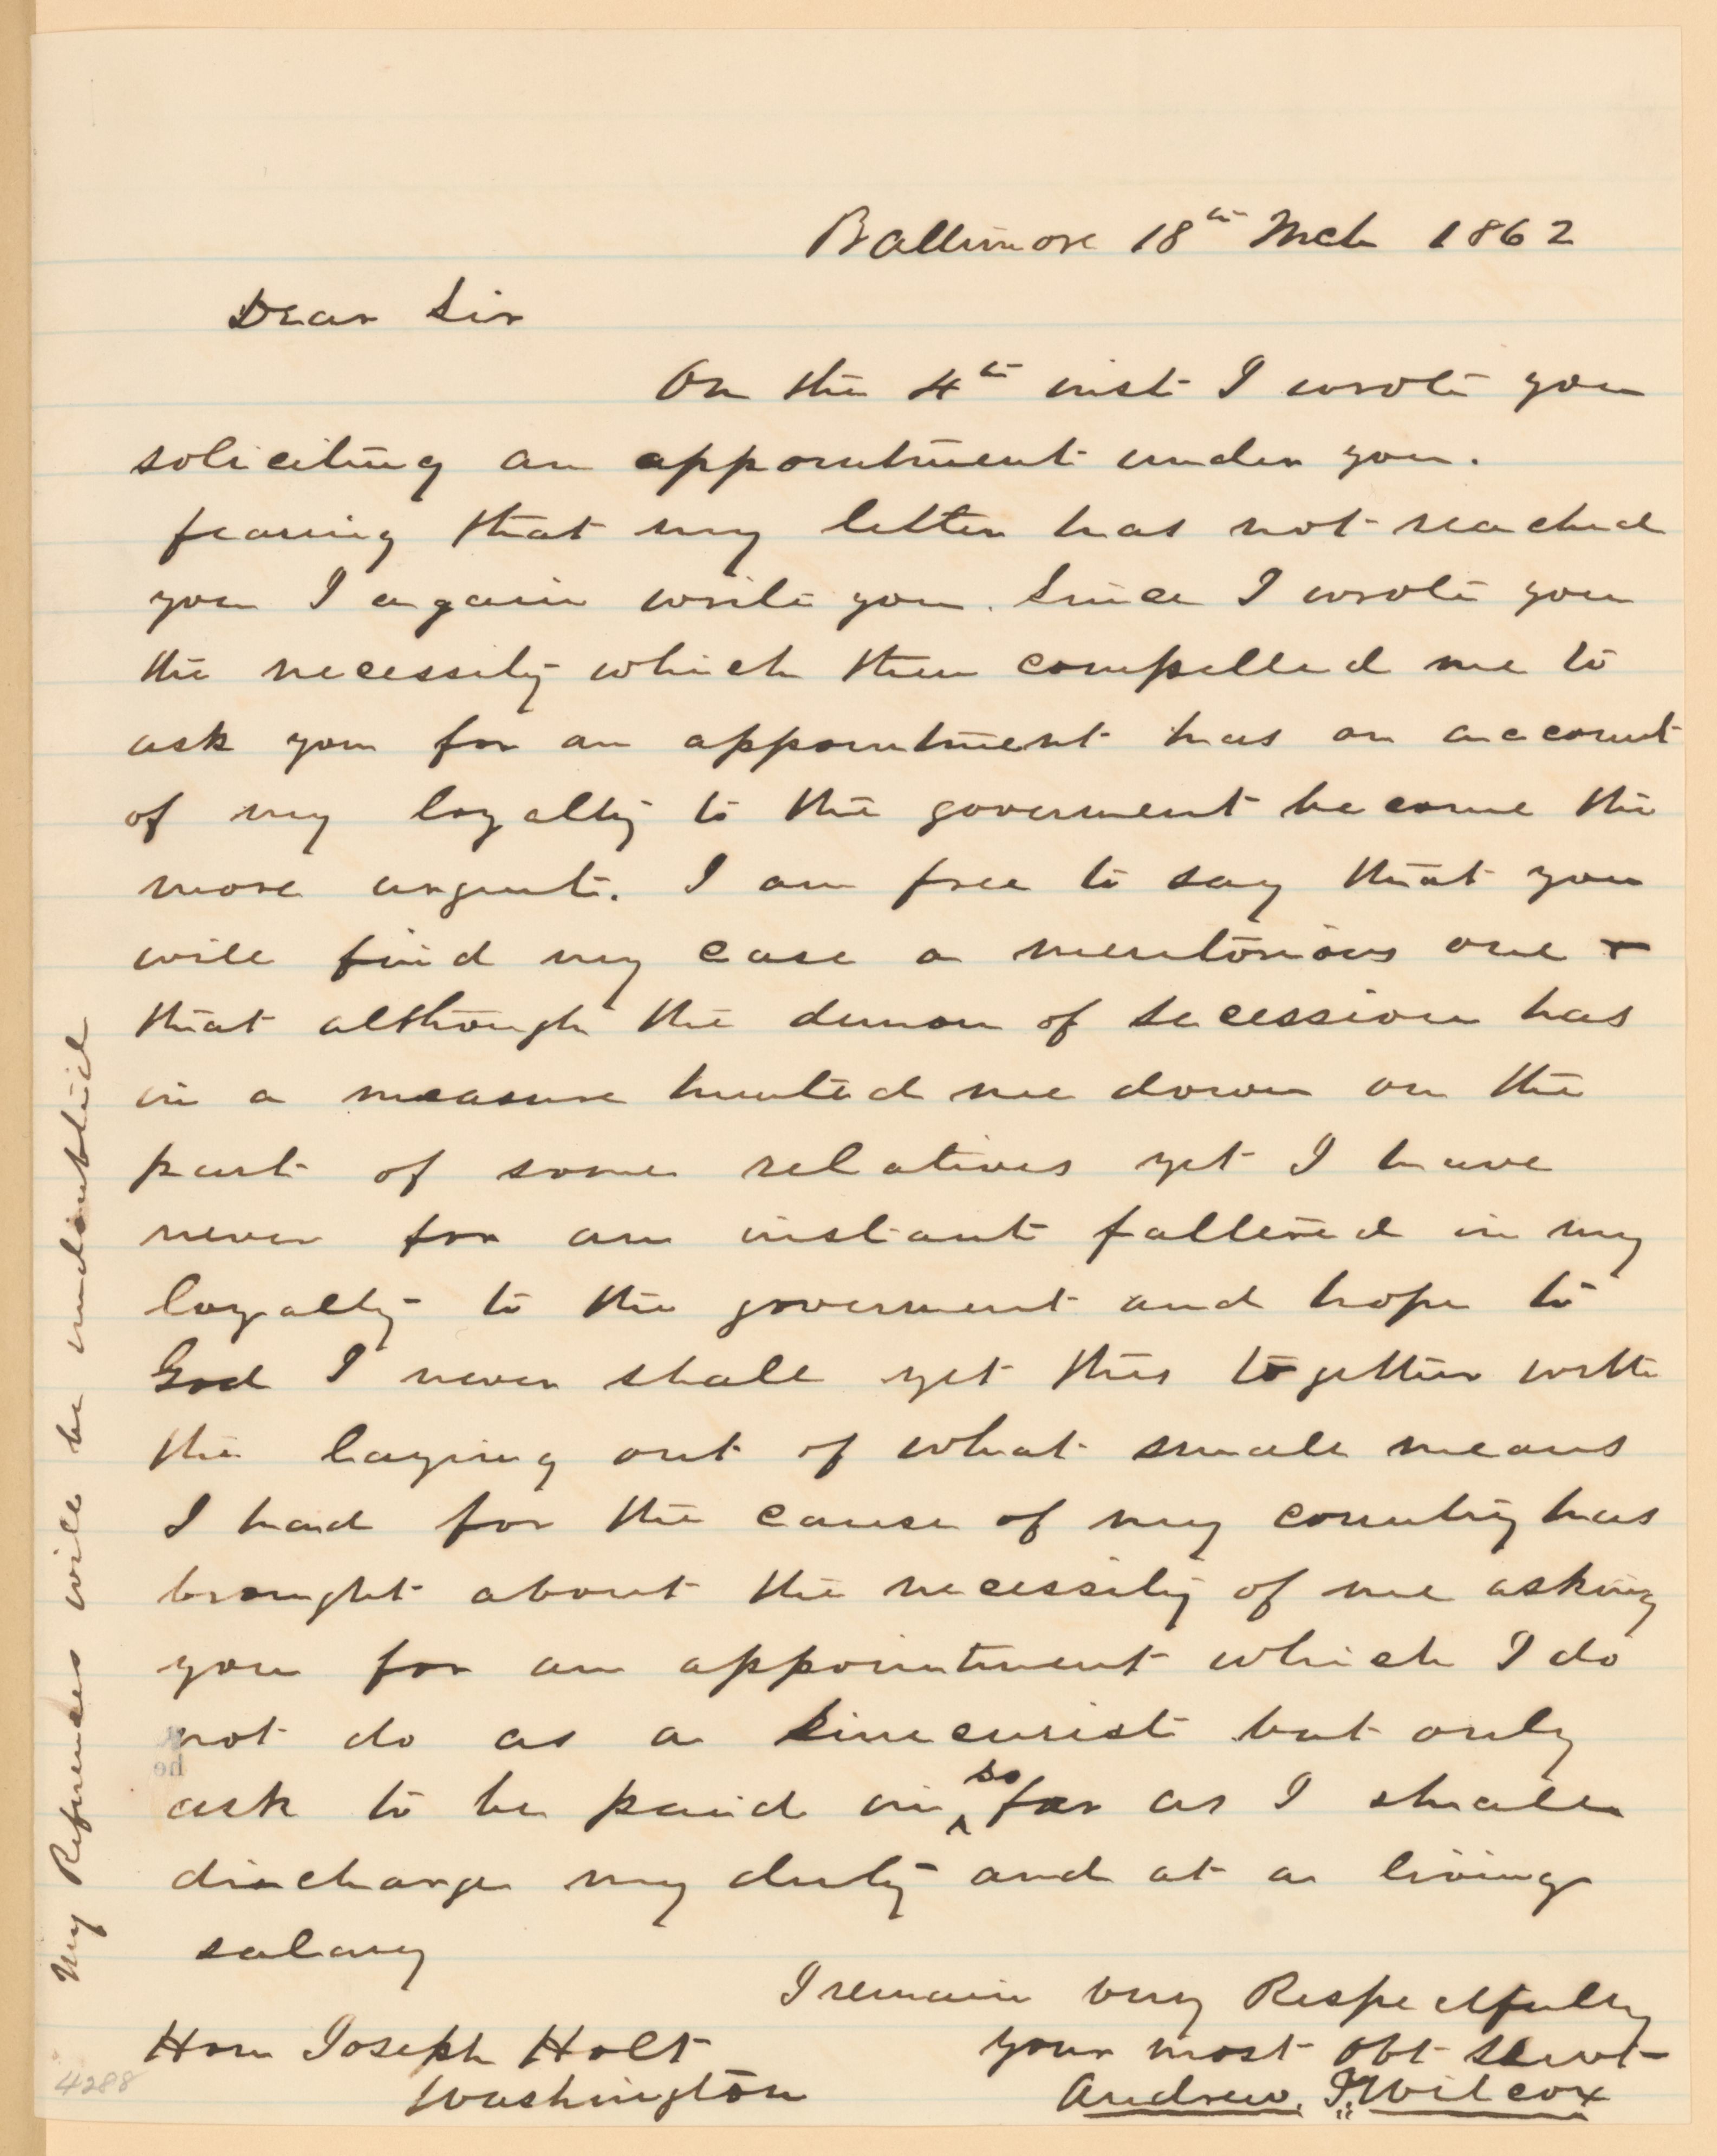 Baltimore 18th Mch 1862
Dear Sir
On the 4th inst I wrote you
soliciting an appointment under you.
fearing that my letter has not reached
you I again write you. Since I wrote you
the necessity which then compelled me to
ask you for an appointment has on account
of my loyalty to the goverment become the
more urgent. I am free to say that you
will find my case a meritorious one &
that although the demon of secession has
in a measure hunted me down on the
part of some relatives yet I have
never for an instant faltered in my
loyalty to the goverment and hope to
God I never shall yet this together with
the laying out of what small means
I had for the cause of my country has
brought about the necessity of me asking
you for an appointment which I do
not do as a sinecurist but only
ask to be paid in so far as I shall
discharge my duty and at a living
salary
I remain very Respectfully
your most Obt Servt
Andrew. J. Wilcox
Hon Joseph Holt
Washington
My References will be undoubted
4288
he